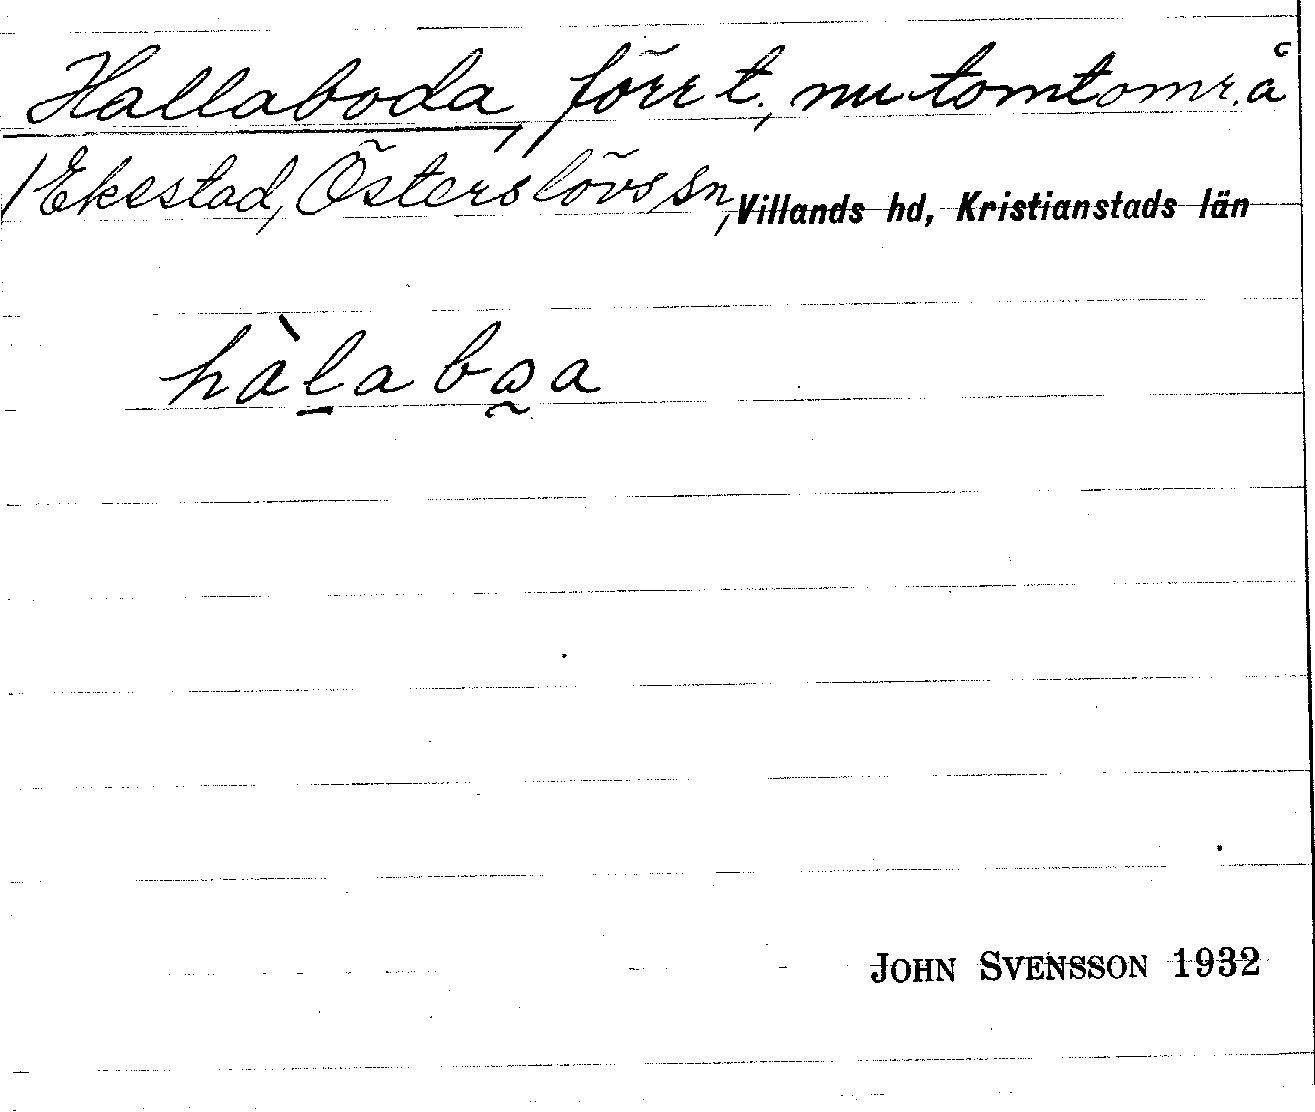 Hallaboda, förr t., nu tomtomr. å
/Ekestad, Österslövs sn, Villands hd, Kristianstads län
hàl̠abɷ̰a
JOHN SVENSSON 1932